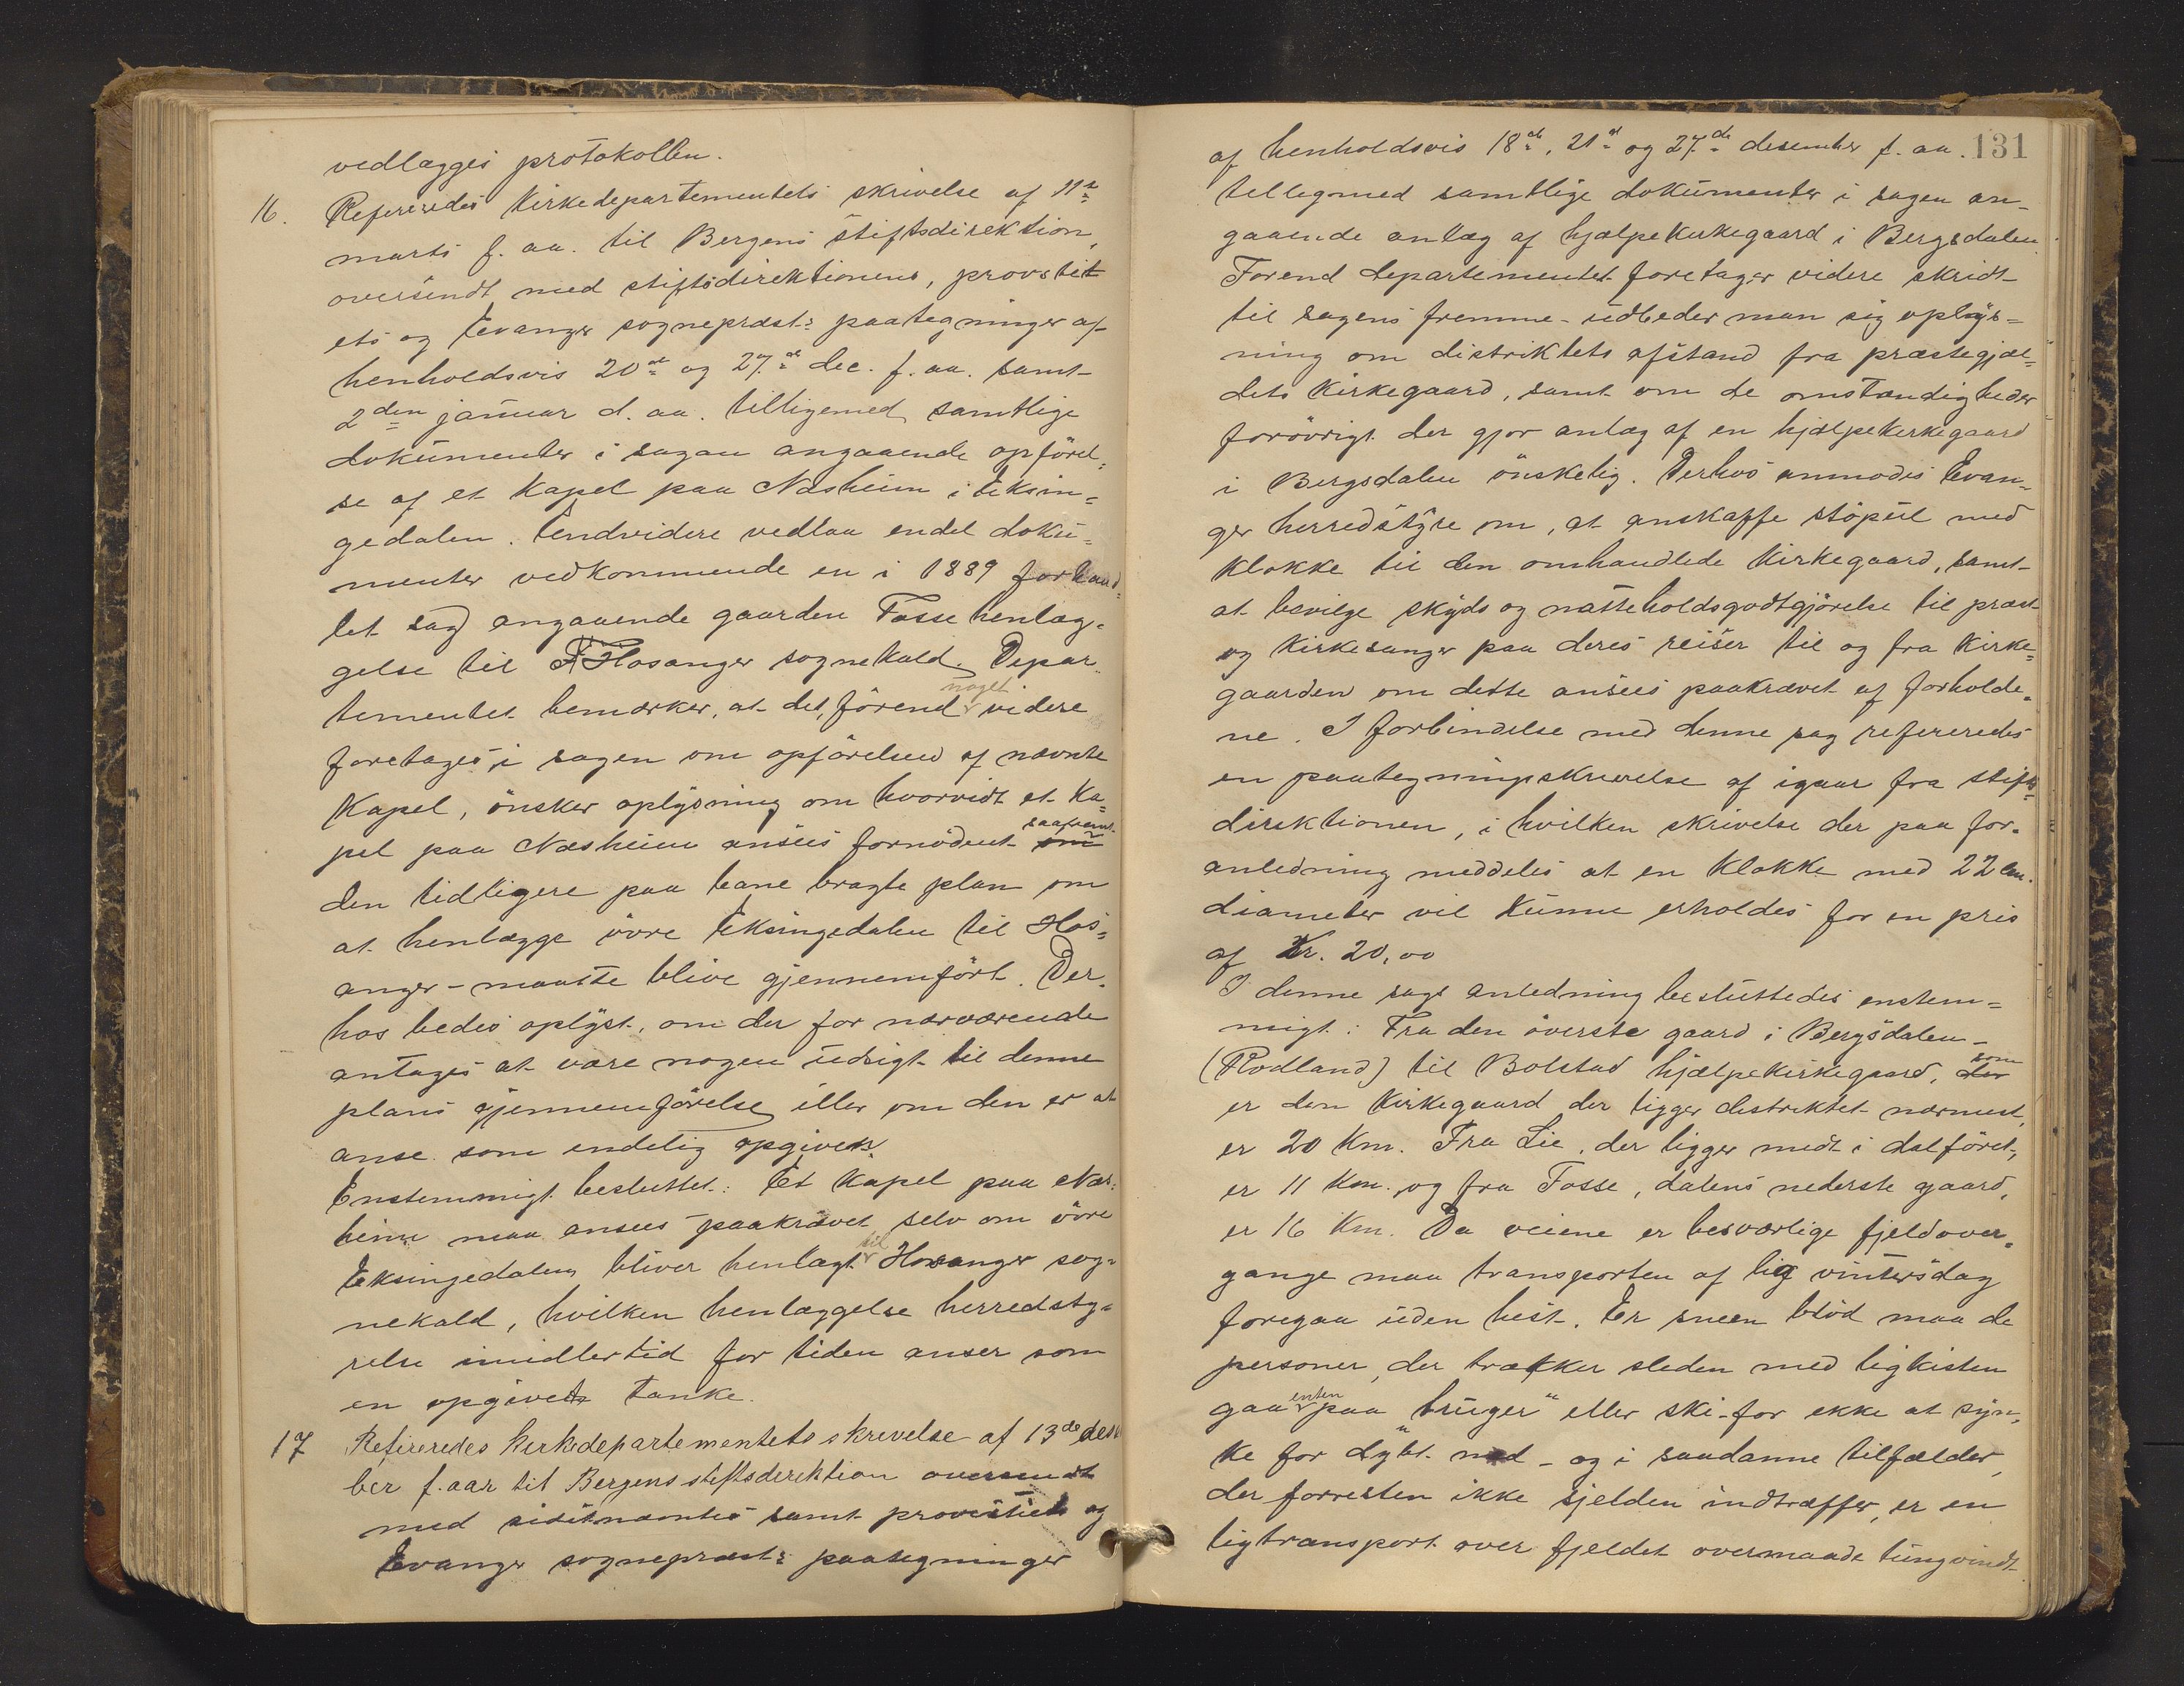 vedlægges protokollen.
16. Refereredes Kirkedepartementets skrivelse af 11te
marts f. aa. til Bergens stiftsdirektion,
oversendt med stiftsdirektionens, provsti-
ets og Evanger sognepræsts paategninger af
henholdsvis 20de og 27de dec. f. aa. samt
2den januar d. aa. tilligemed samtlige
dokumenter i sagen angaaende opförel-
se af et Kapel paa Næsheim i Eksin-
gedalen. Endvidere vedlaa endel doku-
menter vedkommende en i 1889 forhand-
let sag angaaende gaarden Fosse henlæg-
gelse til Hosanger sognekald. Depar-
tementet bemærker, at det, förend noget videre
foretages i sagen om opförelsen af nævnte
Kapel, önsker oplysning om hvorvidt et Ka-
pel paa Næsheim ansees fornödent saafremt
den tidligere paa bane bragte plan om
at henlægge övre Eksingedalen til Hos-
anger - maatte blive gjennemfört. Der-
hos bedes oplyst, om der for nærværende
antages at være nogen udsigt til denne
plans gjennemförelse eller om den er at
anse som endelig opgiven.
Enstemmigt besluttet: Et Kapel paa Næs-
heim maa ansees paakrævet selv om övre
Eksingedalen bliver henlagt til Hosanger sog-
nekald, hvilken henlæggelse herredsty-
relse imidlertid for tiden anser som
en opgivet tanke.
17 Refereredes kirkedepartementets skrivelse af 13de desem
ber f. aar til Bergens stiftsdirektion oversendt
med sidstnævntes samt provstiets og
Evanger sognepræsts paategninger
131
af henholdsvis 18de, 21de og 27de desember f. aa.
tilligemed samtlige dokumenter i sagen an-
gaaende anlæg af hjælpekirkegaard i Bergsdalen.
Forend departementet foretager videre skridt
til sagens fremme - udbeder man sig oplys-
ning om distriktets afstand fra præstegjæl-
dets Kirkegaard, samt om de omstændigheder
forövrigt der gjør anlæg af en hjælpekirkegaard
i Bergsdalen önskelig. Derhos anmodes Evan-
ger herredstyre om, at anskaffe stöpul med
klokke til den omhandlede Kirkegaard, samt
at bevilge skyds og natteholdsgodtgjörelse til præst
og Kirkesanger paa deres reiser til og fra Kirke-
gaarden om dette ansees paakrævet af forholde-
ne. I forbindelse med denne sag refereredes
en paategningsskrivelse af igaar fra stifts-
direktionen, i hvilken skrivelse der paa for-
anledning meddeles at en Klokke med 22 cm.
diameter vil kunne erholdes for en pris
af Kr. 20,00
I denne sags anledning besluttedes enstem-
migt: Fra den överste gaard i Bergsdalen -
(Rødland) til Bolstad hjælpekirkegaard, som
er den Kirkegaard der ligger distriktet nærmest,
er 20 Km. Fra Lie, der ligger midt i dalföret,
er 11 Km. og fra Fosse, dalens nederste gaard,
er 16 Km. Da veiene er besværlige fjeldover-
gange maa transporten af lig vintersdag
foregaa uden hest. Er sneen blöd maa de
personer, der trækker sleden med ligkisten
gaa enten paa "truger" eller ski - for ikke at syn-
ke for dybt ned - og i saadanne tilfælder,
der forresten ikke sjelden indtræffer, er en
ligtransport over fjeldet overmaade tungvindt